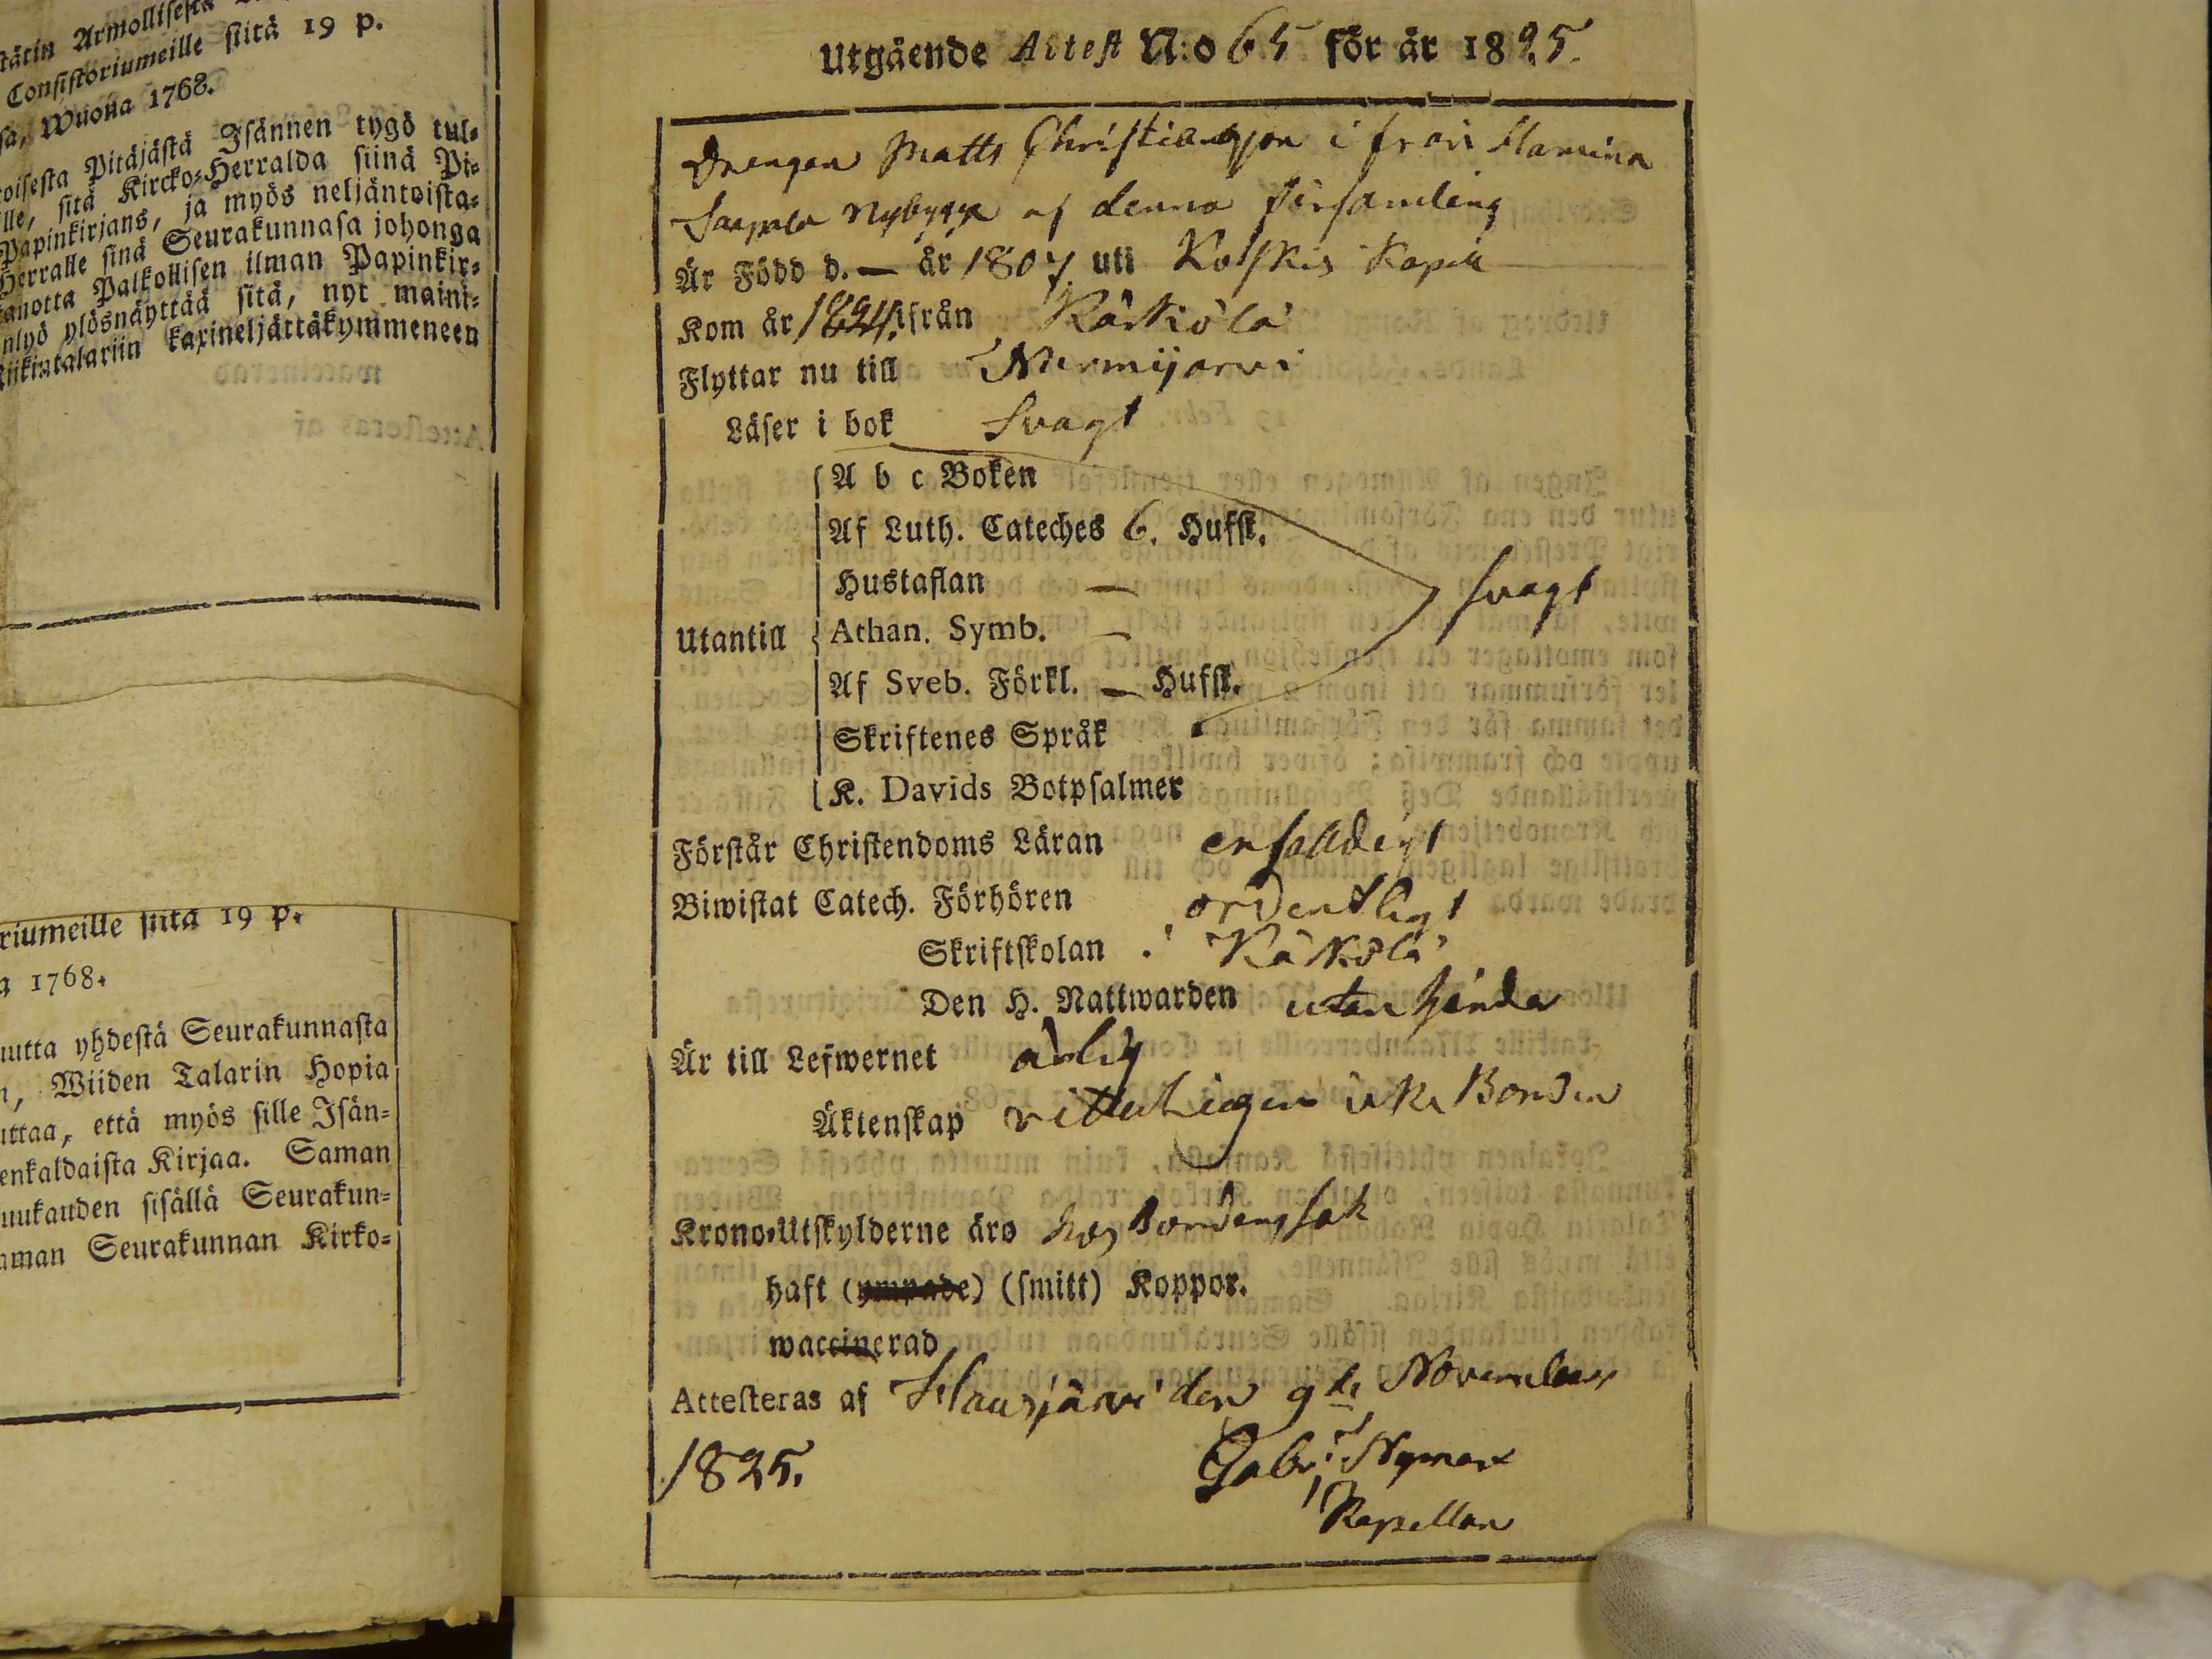 Consistoriumeille siitä 19 p.
Wuonna 1768.
toisesta Pitäjästä Isännen tygö tul=
sitä Kircko=Herralda siinä Pi=
Papinkirjans, ja myös neljäntoista=
Herralle sinä Seurakunnasa johonga
Palkollisen ilman Papinkir=
ylösnäyttää sitä, nyt maini=
kaxineljättäkymmeneen
siitä 19 p.
1768.
yhdestä Seurakunnasta
Wiiden Talarin Hopia
että myös sille Isän=
Kirjaa. Saman
sisällä Seurakun=
Seurakunnan Kirko=
Utgående Attest N:o 65 för år 1825.
Drengen Matts Christiansson ifrån
Nybygge af denna församling
Är Född d. — år 1807 uti Koskis Kapell
Kom år 1824 ifrån Kärkölä
Flyttar nu till Nurmijärvi
Läser i bok Svagt
A b c Boken
Af Luth. Cateches 6. Hufst.
Hustaflan — svagt
Utantill Athan. Symb. —
Af Sveb. Förkl. — Hufst.
Skriftenes Språk
K. Davids Botpsalmer
Förstår Christendoms Läran enfalldigt
Biwistat Catech. Förhören ordentligt
Skriftskolan i Kärkölä
Den H. Nattwarden utan hinder
Är till Lefwernet ärlig
Äktenskap
Krono=Utskylderne äro hos
haft (ympade) (smitt) Koppor.
waccinerad
Attesteras af Hausjärvi den 9de November
1825. Gabr: Nyman
Kapellan